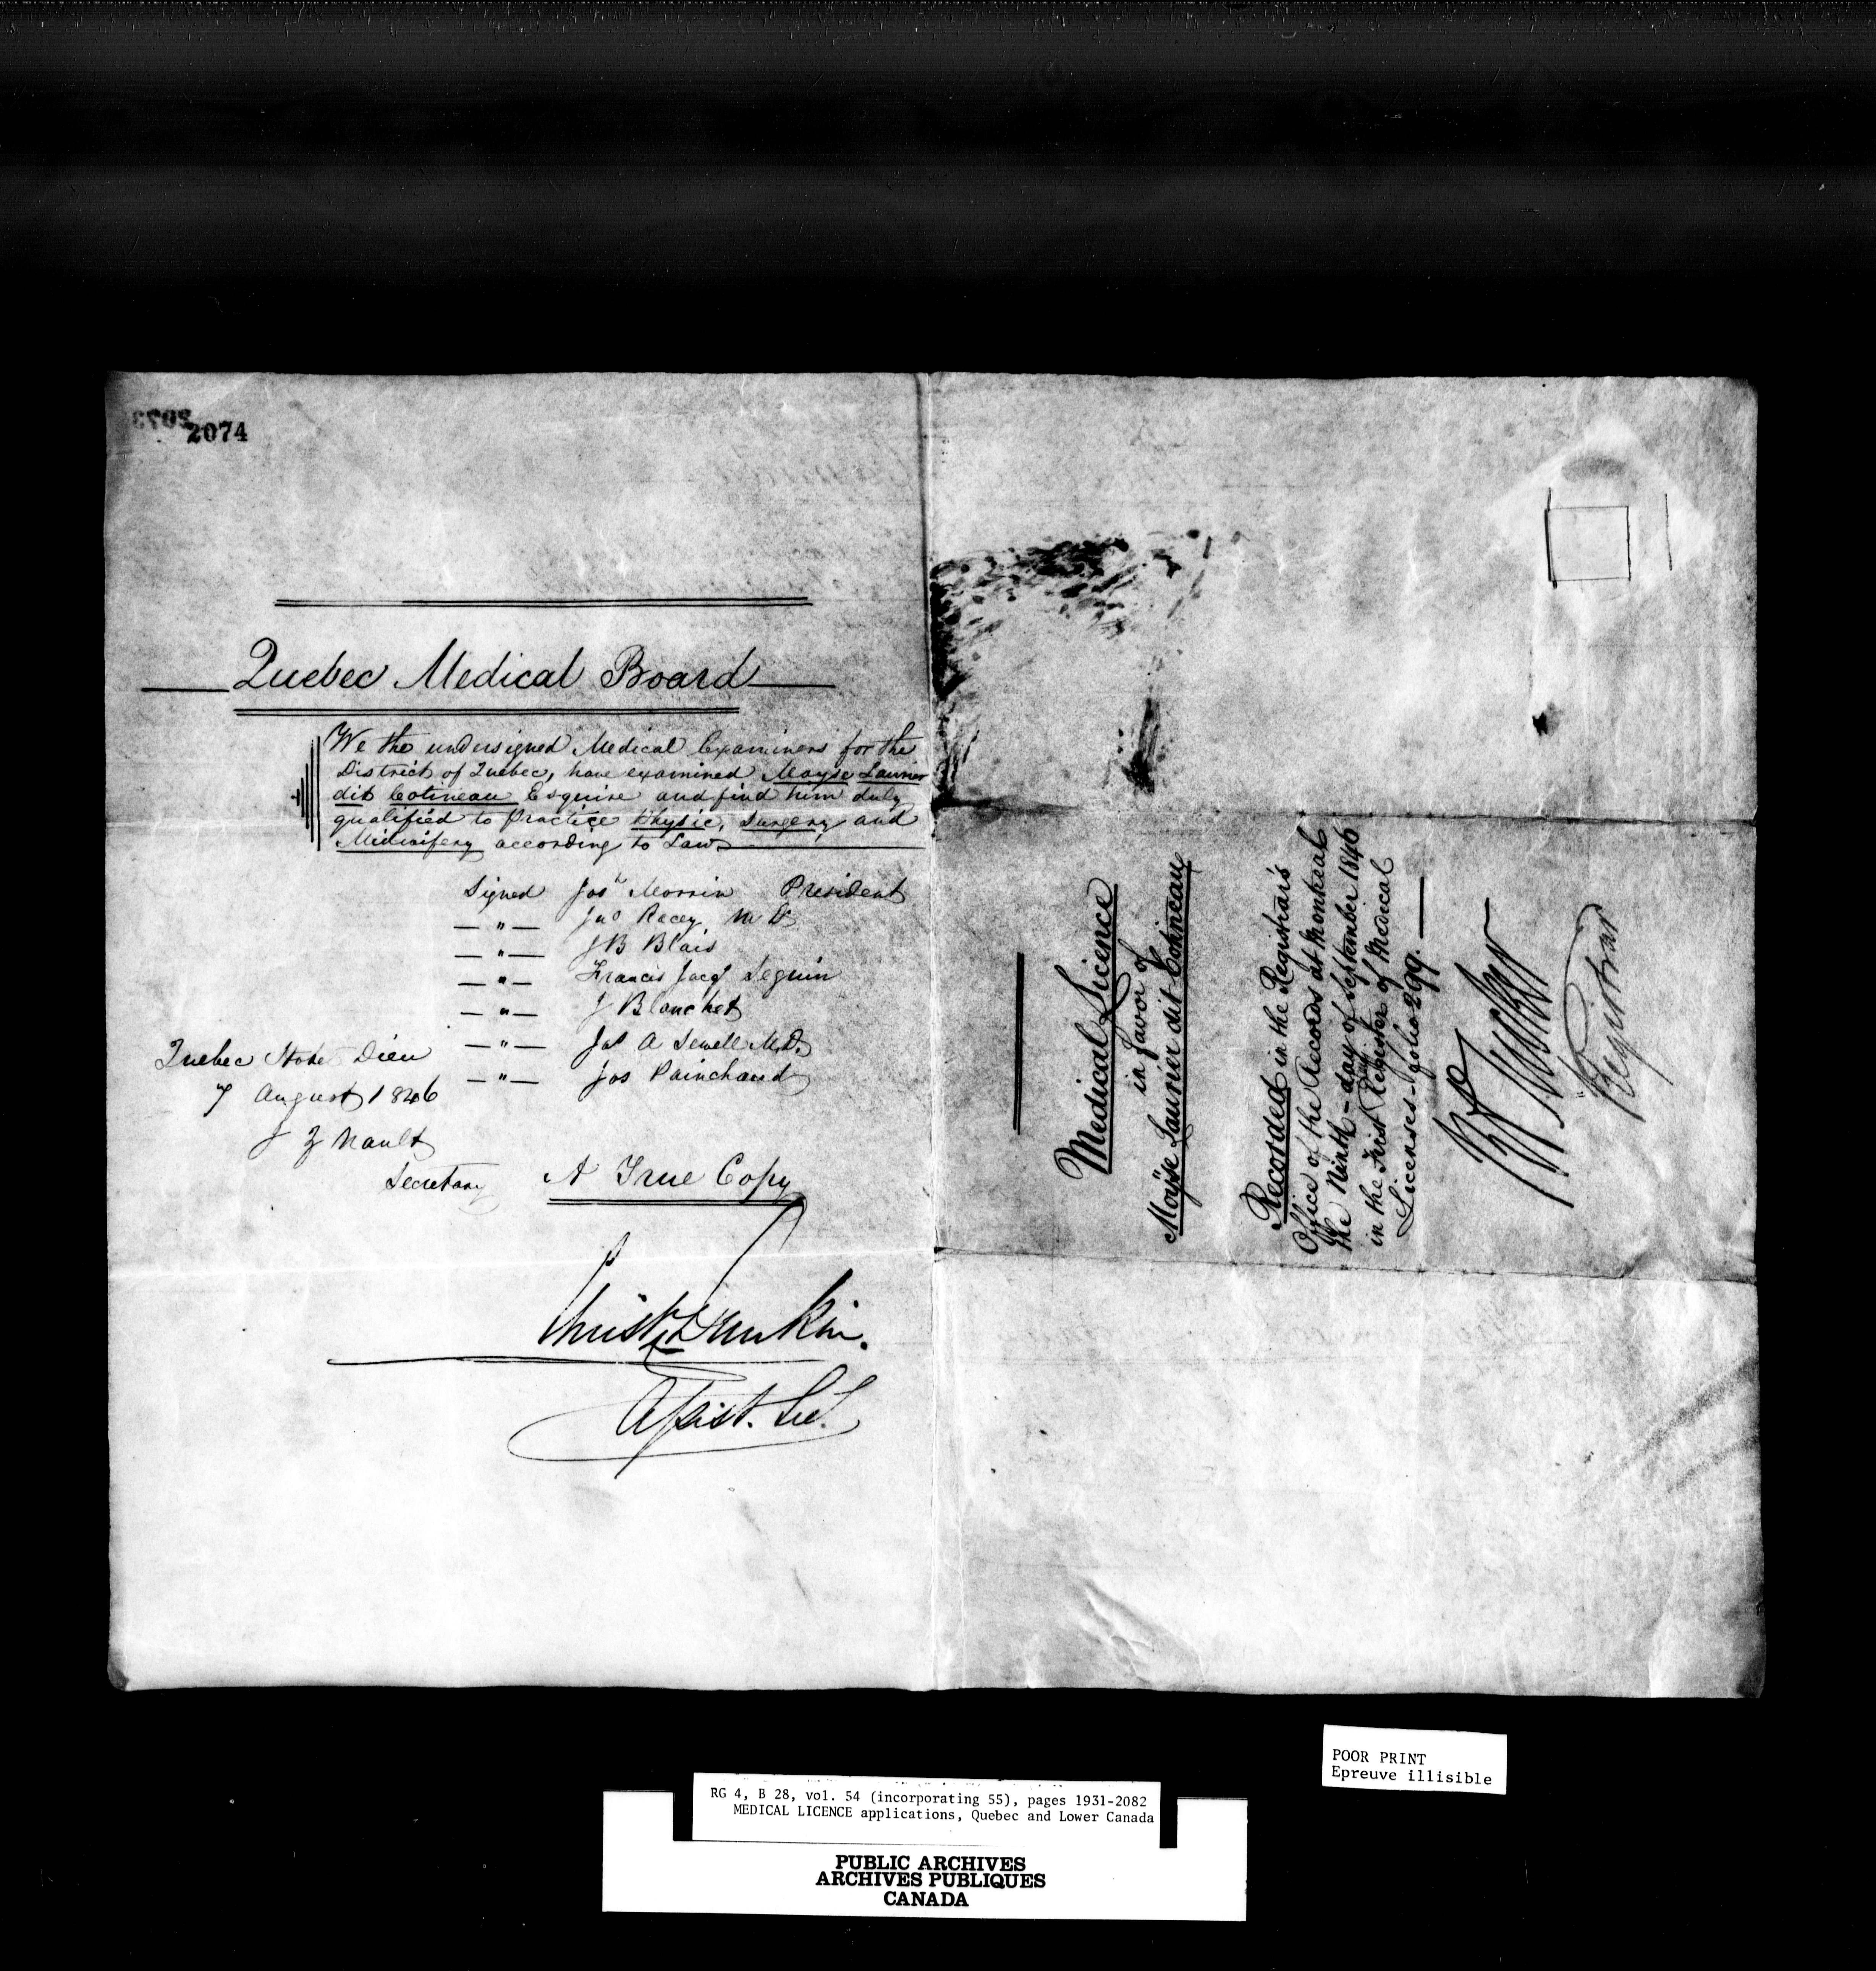 2073
2074
Quebec Medical Board
We the undersigned Medical Examiners for the
District of Quebec, have examined Moyse Laurier
dit Cotineau Esquire and find him duly
qualified to Practice Physic, Surgery and
Midwifery according to Law
Signed Josh Morrin President
— " — Jno Racey M D
— " — J B Blais
— " — Francis Jacqs Seguin
— " — J Blanchet
— " — Jas A Sewell M.D.
— " — Jos Painchaud
Quebec Hote Dieu
7 August 1846
J Z Nault
Secretary
A True Copy
Christr Dunkin.
Assist. Sec.
Medical Licence
in favor of
Moÿse Laurier dit Cotineau
Recorded in the Registrar's
Office of the Records at Montreal
the Ninth - day of September 1846
in the First Register of Medical
Licenses - folio 299. —
Registrar
POOR PRINT
Epreuve illisible
RG 4, B 28, vol. 54 (incorporating 55), pages 1931-2082
MEDICAL LICENCE applications, Quebec and Lower Canada
PUBLIC ARCHIVES
ARCHIVES PUBLIQUES
CANADA